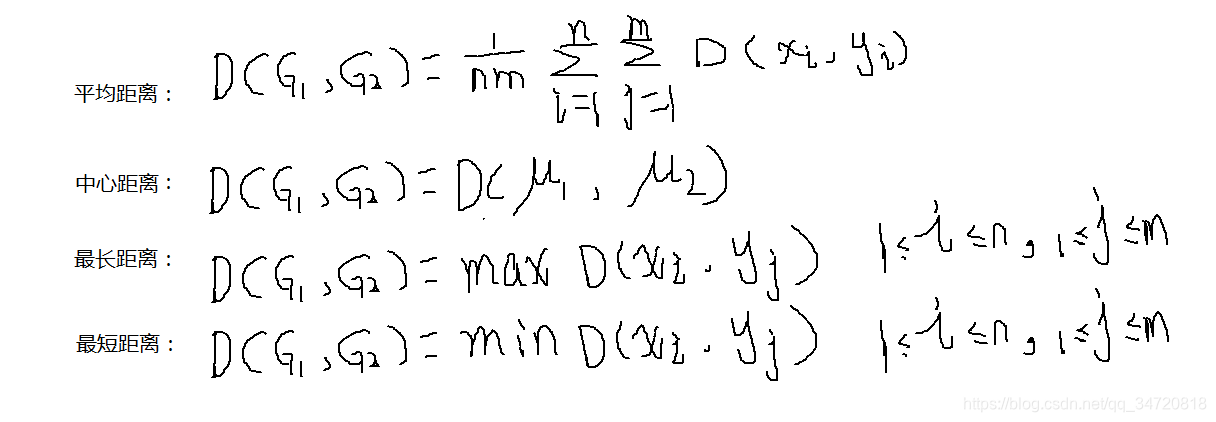 平均距离： D(G₁,G₂)=1/nm ∑ⁿᵢ₌₁ ∑ᵐⱼ₌₁ D(xᵢ,yᵢ)
中心距离： D(G₁,G₂)=D(μ₁,μ₂)
最长距离： D(G₁,G₂)=max D(xᵢ,yⱼ) 1≤i≤n,1≤j≤m
最短距离： D(G₁,G₂)=min D(xᵢ,yⱼ) 1≤i≤n,1≤j≤m
https://blog.csdn.net/qq_34720818